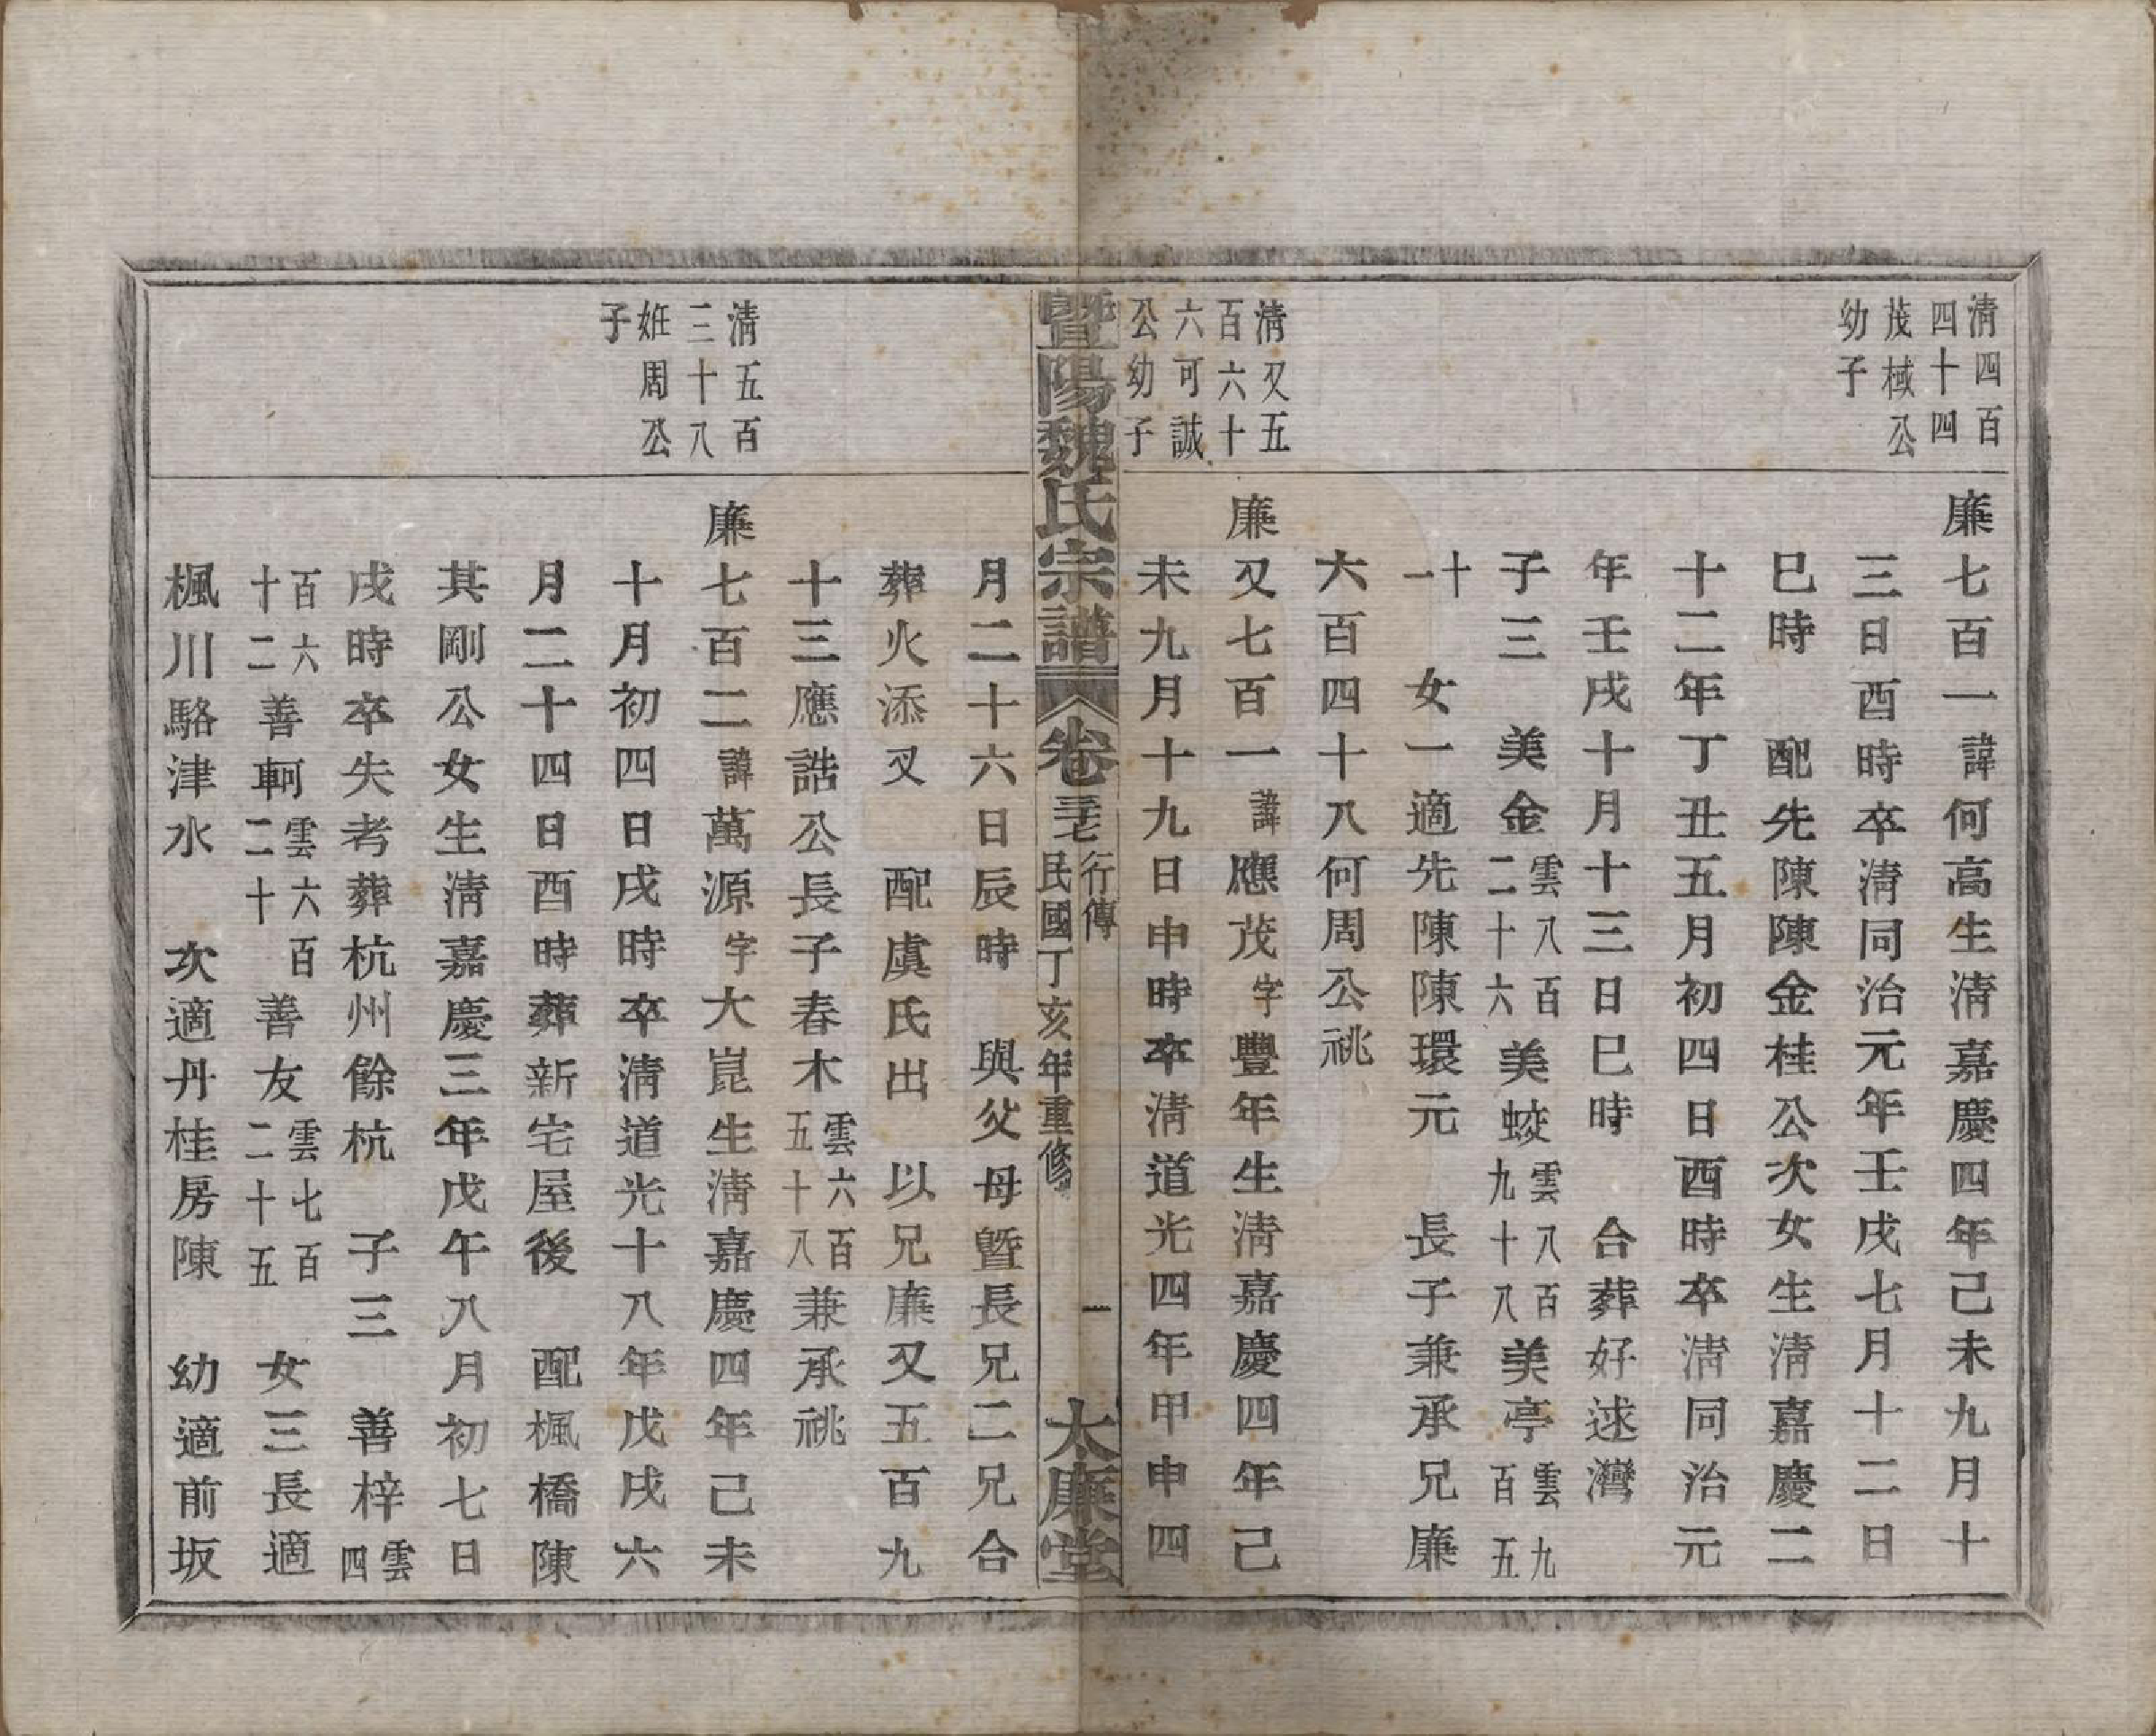 清四百
四十四
茂棫公
幼子
廉七百一諱何高生清嘉慶四年己未九月十
三日酉時卒清同治元年壬戌七月十二日
巳時　配先陳陳金桂公次女生清嘉慶二
十二年丁丑五月初四日酉時卒清同治元
年壬戌十月十三日巳時　合葬好逑灣
子三　美金雲八百二十六美蛟雲八百九十八美亭雲九百五
十一　女一適先陳陳環元　長子兼承兄廉
六百四十八何周公祧
清又五
百六十
六可誠
公幼子
廉又七百一諱應茂字豐年生清嘉慶四年己
未九月十九日申時卒清道光四年甲申四
暨陽魏氏宗譜
卷
行傳
民國丁亥年重修
一
大廉堂
月二十六日辰時　與父母曁長兄二兄合
葬火添叉　配虞氏出　以兄廉又五百九
十三應誥公長子春木雲六百五十八兼承祧
清五百
三十八
姙周公
子
廉七百二諱萬源字大崑生清嘉慶四年己未
十月初四日戌時卒清道光十八年戊戌六
月二十四日酉時葬新宅屋後　配楓橋陳
其剛公女生清嘉慶三年戊午八月初七日
戌時卒失考葬杭州餘杭　子三　善梓雲四
百六十二善軻雲六百二十善友雲七百二十五　女三長適
楓川駱津水　次適丹桂房陳　幼適前坂